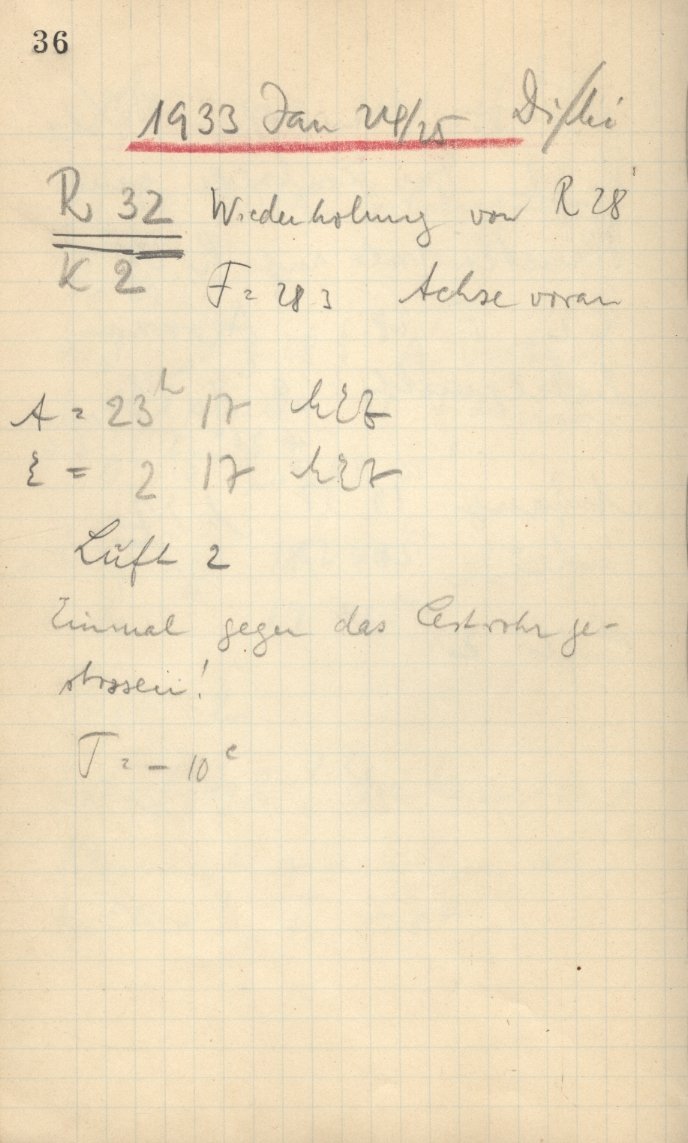 36
1933 Jan 24/25 Di/Mi
R 32 Wiederholung von R 28
K 2 F = 28 3 Achse voran
A = 23h 17 MEZ
E = 2 17 MEZ
Luft 2
Einmal gegen das ge-
stossen!
T = - 10°